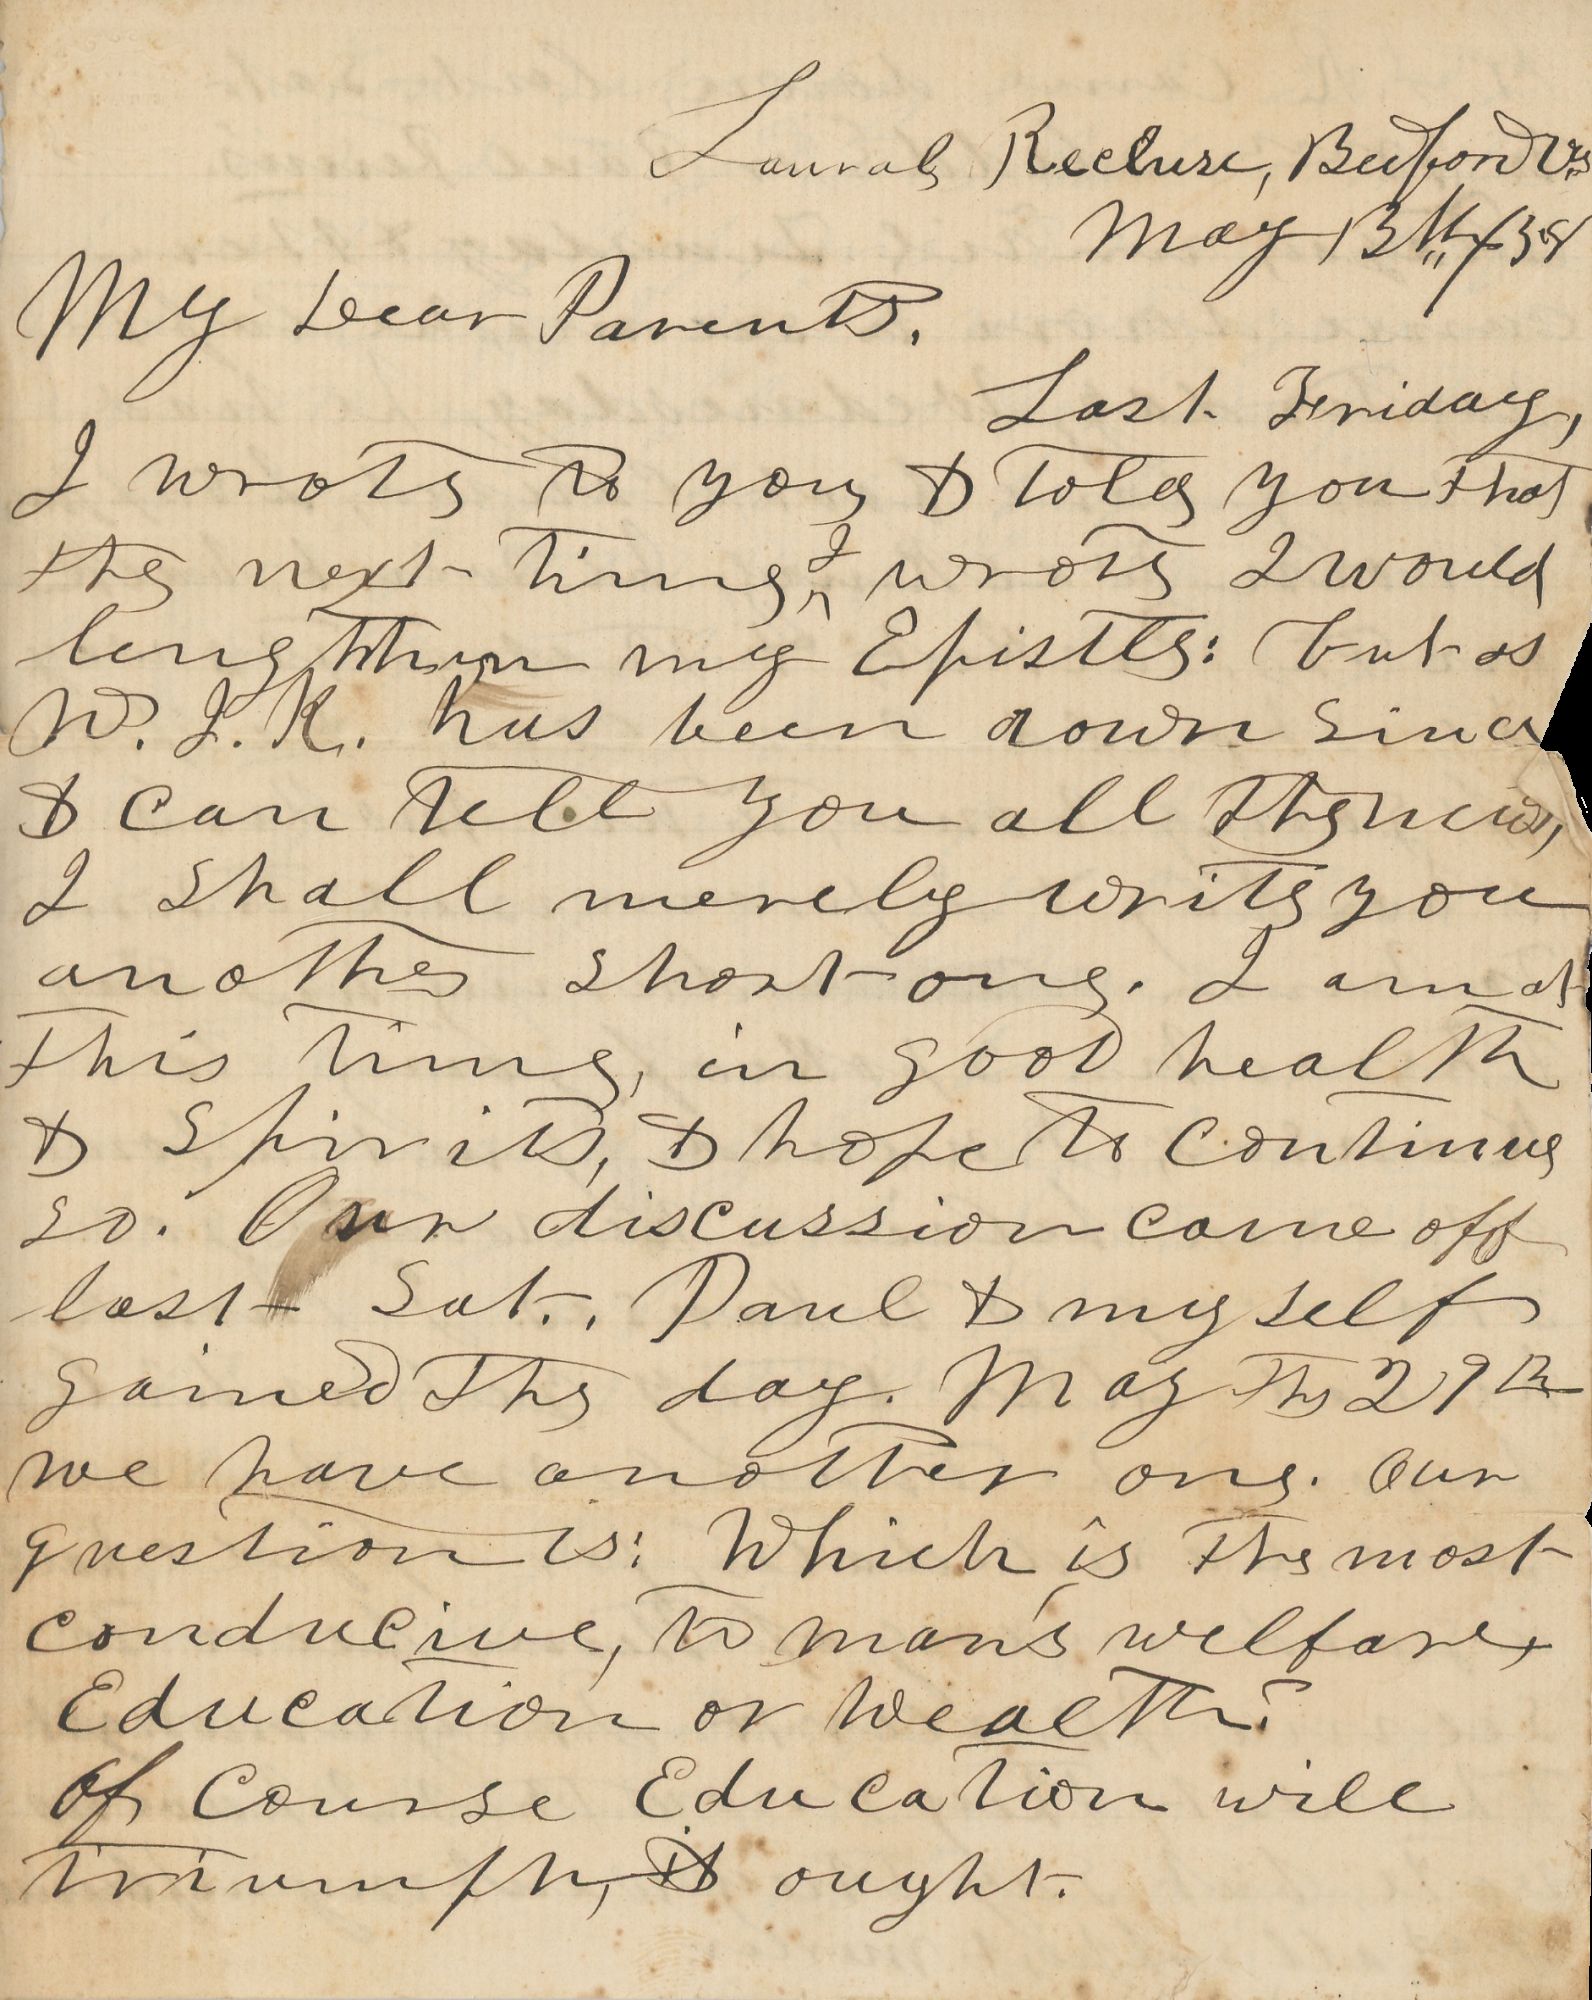 Laural Recluse, Bedford Va
May 13th, /38
My Dear Parents.
Last Friday,
I wrote to you & told you that
the next time I wrote I would
lengthen my Epistle: but as
W. J. K. has been down since
& can tell you all the news,
I shall merely write you
another short one. I am at
this time, in good health
& spirits, & hope to continue
so. Our discussion came off
last Sat., Paul & myself
gained the day. May the 27th
we have another one. Our
question is: Which is the most
conducive, to man's welfare,
Education or Wealth?
Of Course Education will
triumph, it ought.